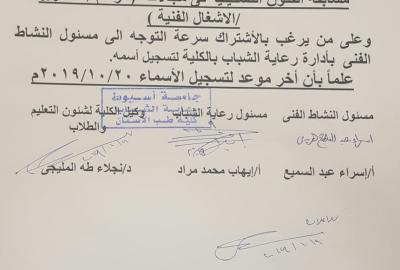 /الاشغال الفنية )
وعلى من يرغب بالأشتراك سرعة التوجه الى مسئول النشاط
الفنى بأدارة رعاية الشباب بالكلية لتسجيل أسمه.
علماً بأن أخر موعد لتسجيل الأسماء ٢٠١٩/١٠/٢٠م
جامعة أسيوط
رعاية الشباب
كلية طب الأسنان
مسئول النشاط الفنى
مسئول رعاية الشباب
وكيل الكلية لشئون التعليم
والطلاب
أ/إسراء عبد السميع
أ/إيهاب محمد مراد
د/نجلاء طه المليجى